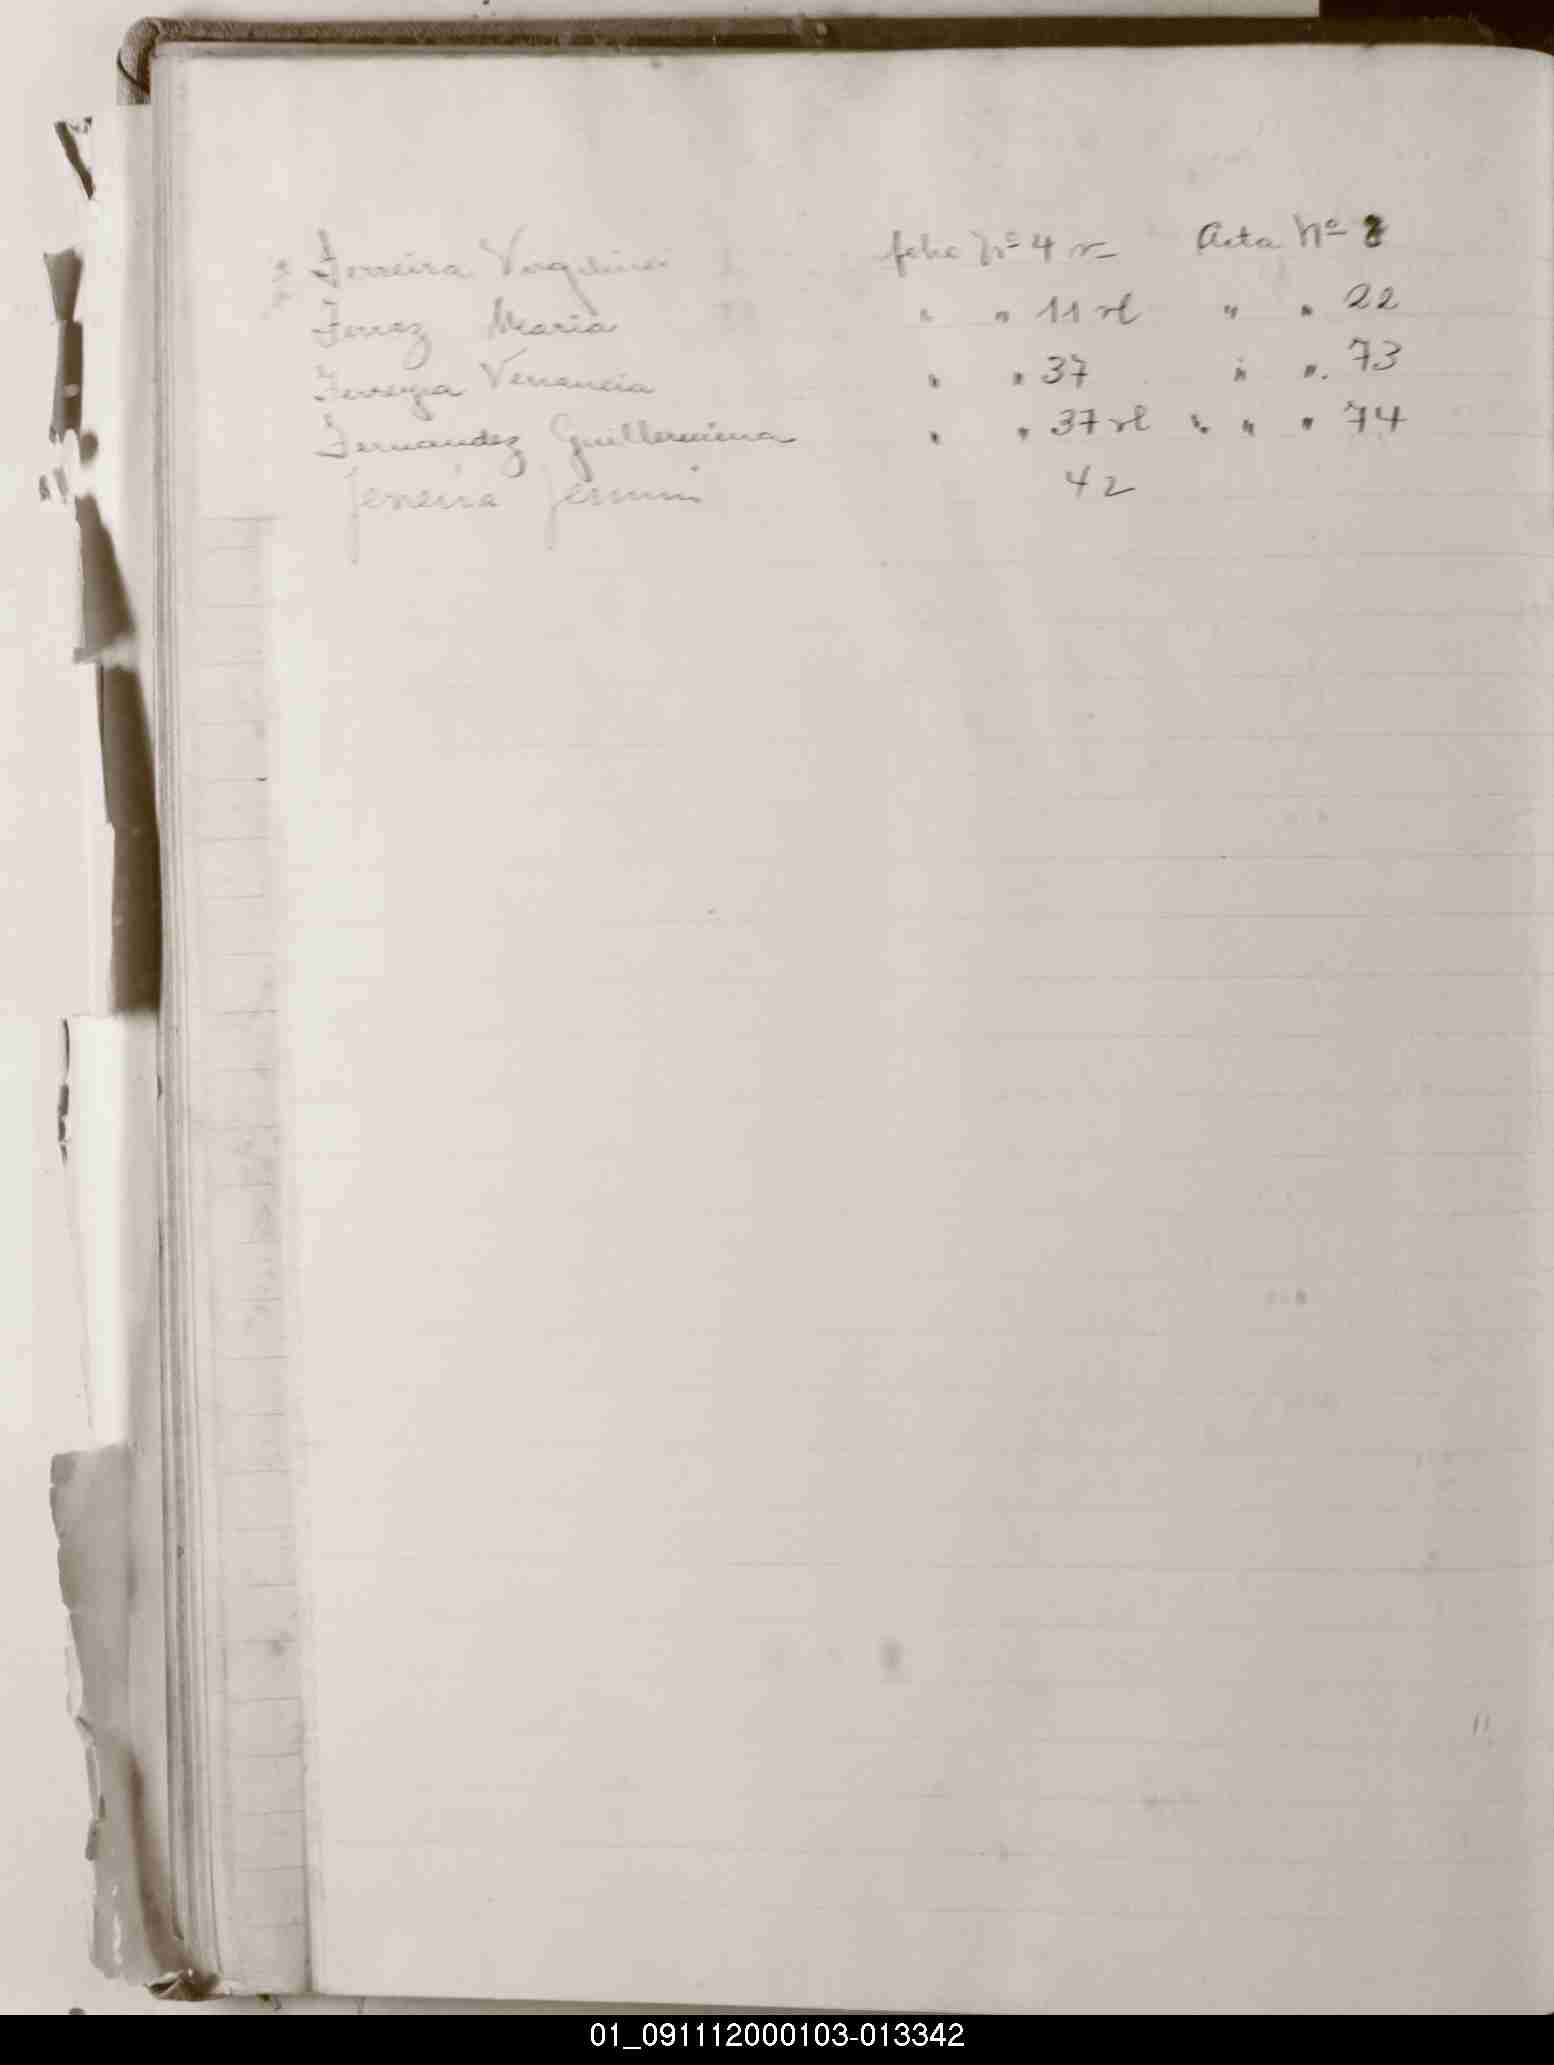 Ferreira Virginia folio Nº 4 v Acta Nº 8
Ferraz Maria " " 11 vt " " 22
Ferreyra Venancia " " 37 " " 73
Fernandez Guillermina " " 37 vt " " " 74
Ferreira 42
01_091112000103-013342